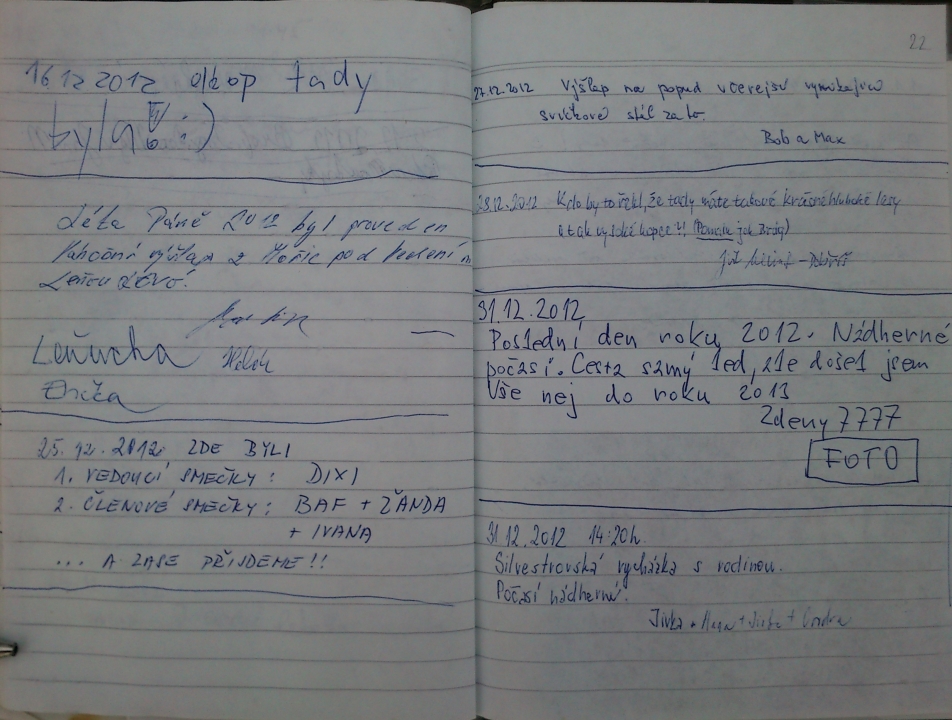 16 12 2012 tady
Léta Páně 2012 byl proveden
Vánoční výšlap z Hořic pod vedením
Leňučha
Erička
25. 12. 2012 ZDE BYLI
1. VEDOUCÍ SMEČKY: DIXI
2. ČLENOVÉ SMEČKY: BAF + ŽANDA
+ IVANA
... A ZASE PŘIJDEME!!
22
27.12.2012 Výšlap na popud včerejší vynikající
svíčkové stál za to.
Bob a Max
28.12.2012 Kdo by to řekl, že tady máte takové krásné hluboké lesy
a tak vysoké kopce!! (Pomalu jak Brdy)
31.12.2012
Poslední den roku 2012. Nádherné
počasí. Cesta samý led, ale došel jsem
Vše nej do roku 2013
Zdeny 7777
FOTO
31.12.2012 14:20h.
Silvestrovská vycházka s rodinou.
Počasí nádherné!
Jirka + Hana +